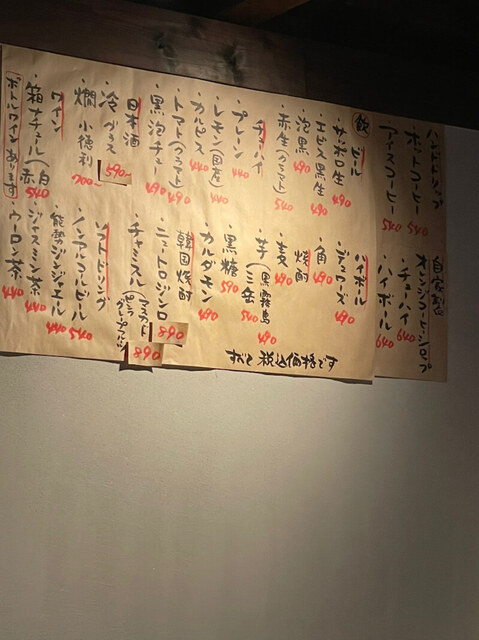 ハンドドリップ
ホットコーヒー 540
アイスコーヒー 540
自家製
オレンジコーヒーシロップ
・チューハイ 640
・ハイボール 640
飲
ビール
・サッポロ生 490
・ヱビス黒生 490
・泡黒 490
・赤生(クラフト) 540
チューハイ
・プレーン 440
・レモン(国産) 440
・カルピス 440
・トマト(クラフト) 490
・黒泡チュー 490
日本酒
・冷 グラス 590-
・燗 小徳利 700-
ワイン
箱ナチュレ(白 赤 540
ボトルワインあります
ハイボール
・デュワーズ 490
・角 490
焼酎
・麦 490
・芋(黒霧島 490
三岳 540
・黒糖 590
カルダモン 490
韓国焼酎
・ニュートロジンロ 890
・チャミスル(マスカット
グレープフルーツ 890
ソフトドリンク
・ノンアルコールビール 540
・能勢ジンジャエール 440
・ジャスミン茶 440
・ウーロン茶 440
すべて税込価格です